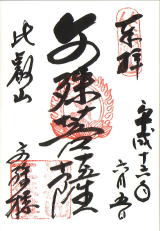 奉拝
平成十三年
六月五日
文殊菩薩
比叡山
文殊楼